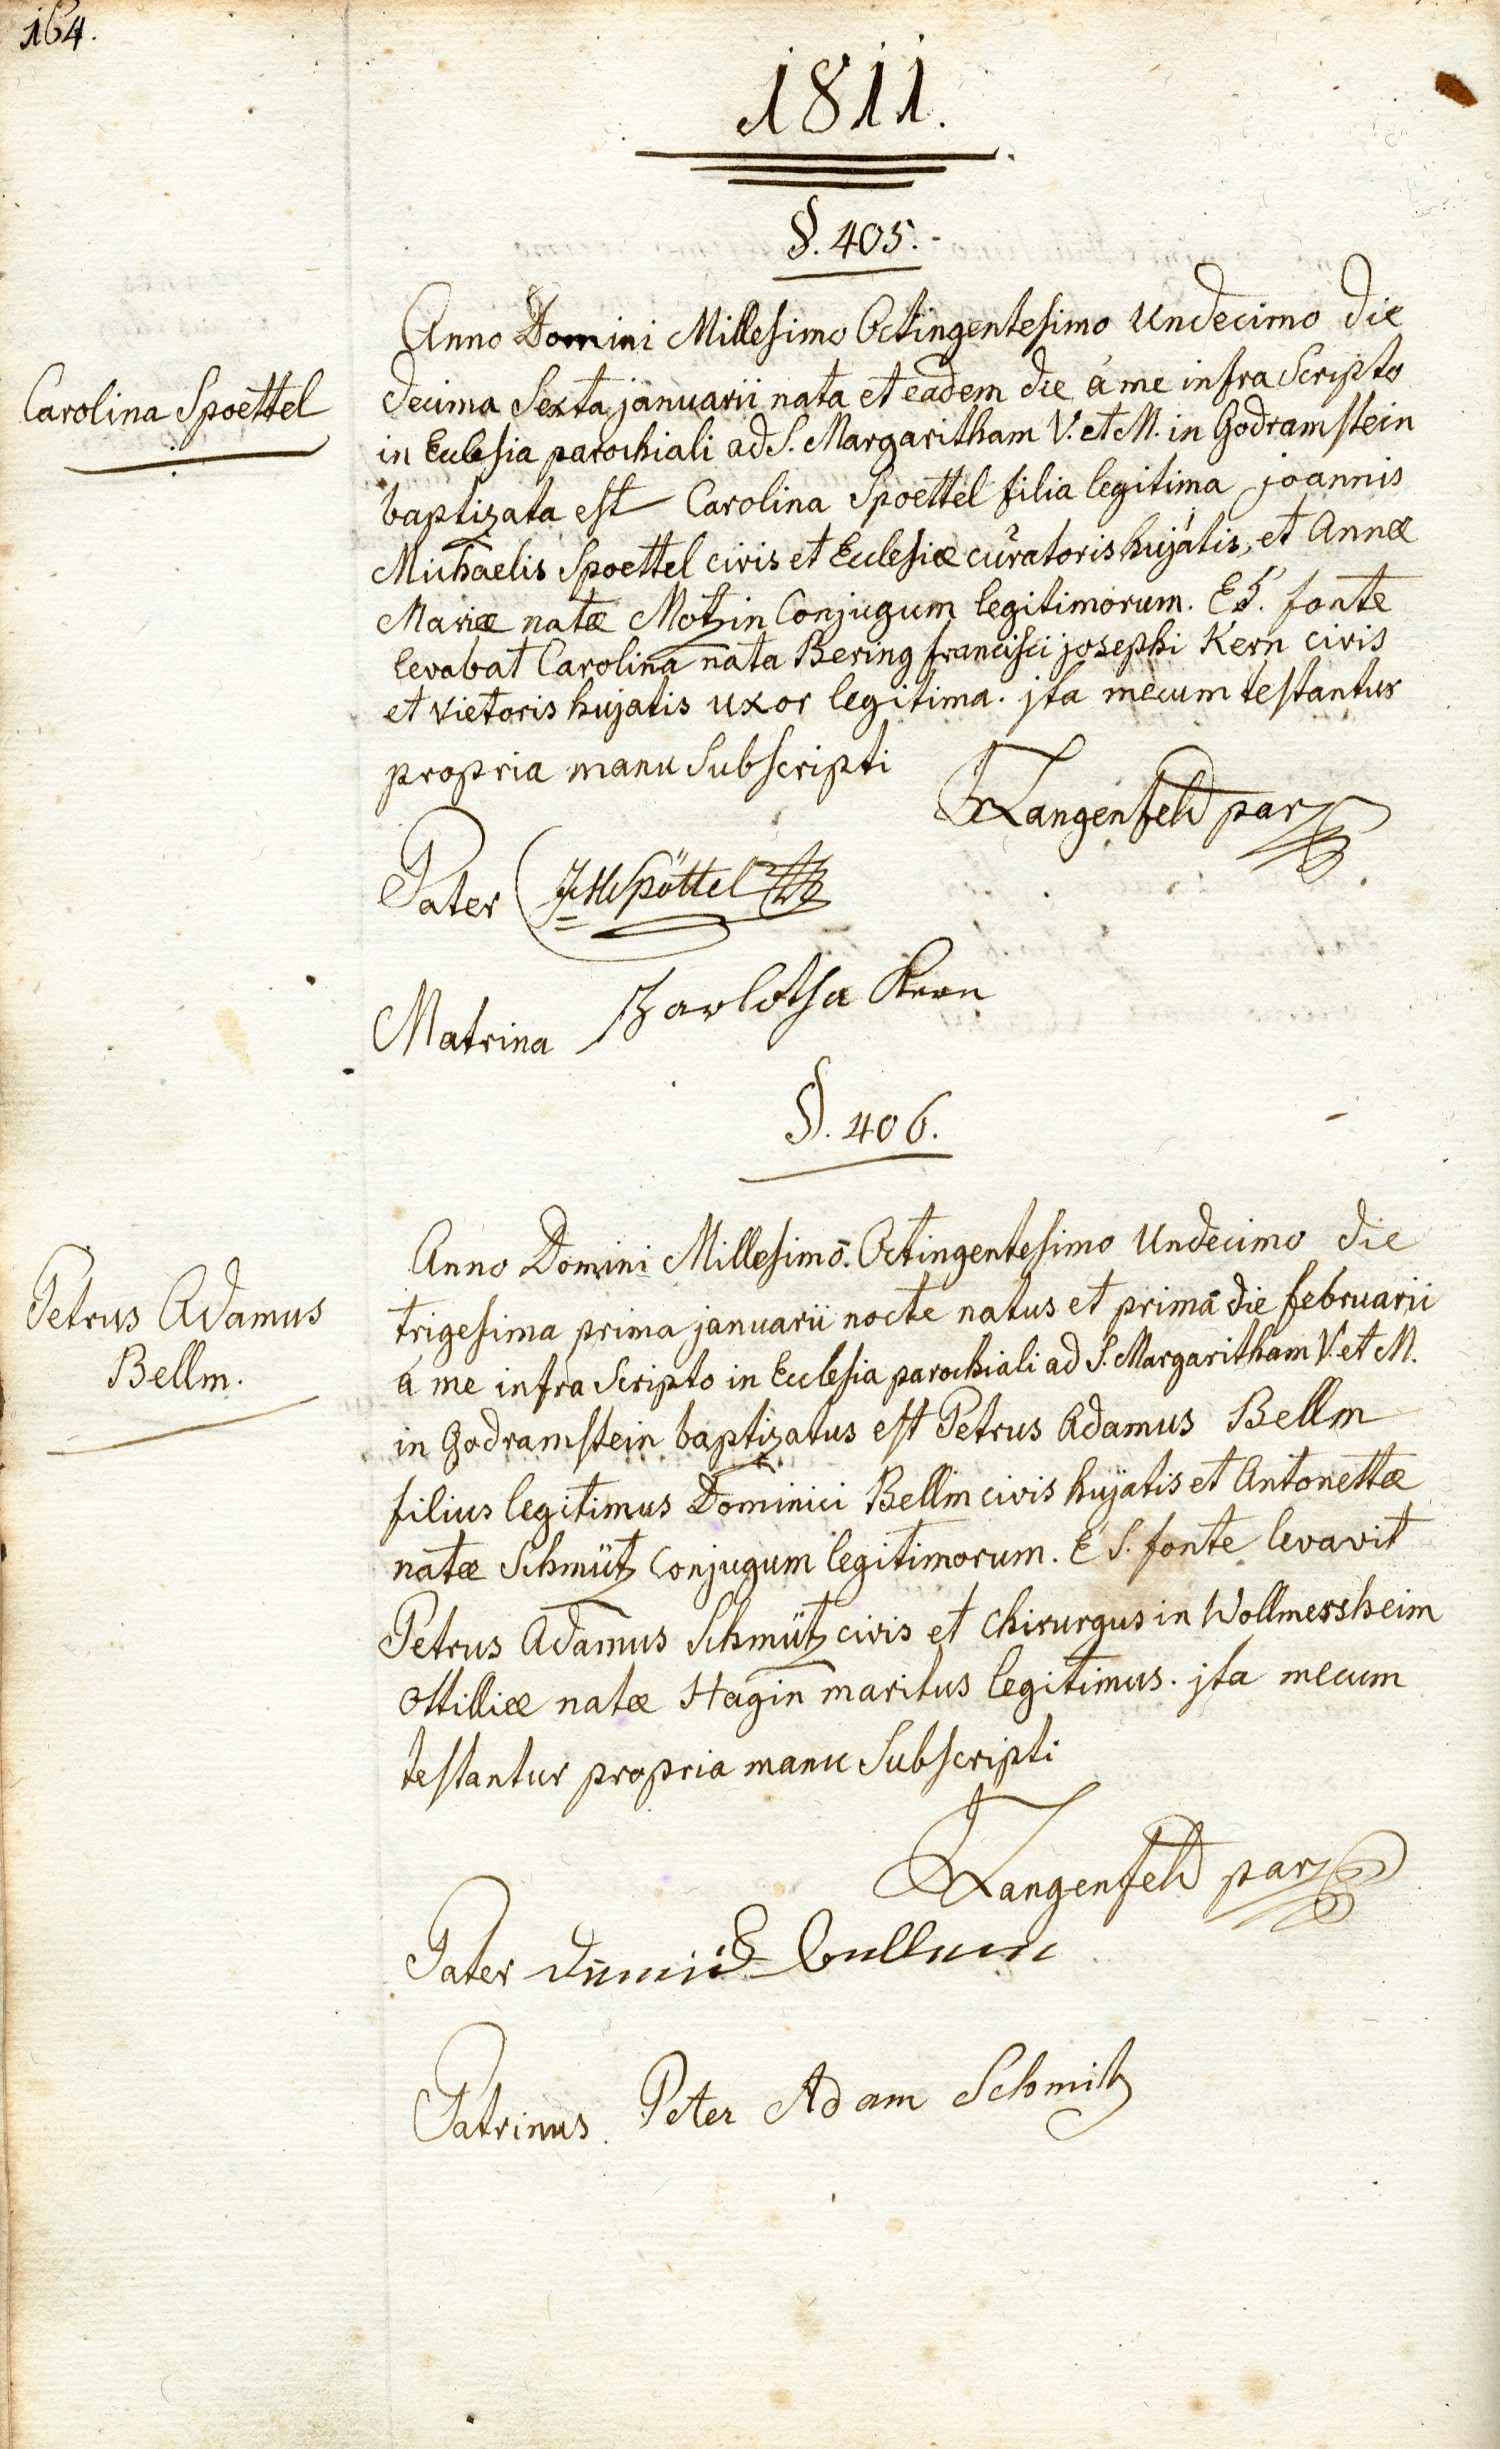 164.
1811.
§. 405.
Carolina Spoettel
Anno Domini Millesimo Octingentesimo Undecimo die
decima Sexta januarii nata et eadem die á me infra Scripto
in Ecclesia parochiali ad S. Margaritham V. et M. in Godramstein
baptizata est Carolina Spoettel filia legitima joannis
Michaelis Spoettel civis et Ecclesiæ curatoris hujatis, et Annæ
Mariæ natæ Motzin Conjugum legitimorum. E S. fonte
levabat Carolina nata Bering francisci josephi Kern civis
et vietoris hujatis uxor legitima. jta mecum testantur
propria manu Subscripti
Langenfeld par
Pater JMSpöttel
Matrina Kern
§. 406.
Petrus Adamus
Bellm.
Anno Domini Millesimo. Octingentesimo Undecimo die
trigesima prima januarii nocte natus et prima die februarii
á me infra Scripto in Ecclesia parochiali ad S. Margaritham V. et M.
in Godramstein baptizatus est Petrus Adamus Bellm
filius legitimus Dominici Bellm civis hujatis et Antonettæ
natæ Schmütz Conjugum legitimorum. E S. fonte levavit
Petrus Adamus Schmütz civis et Chirurgus in Wollmersheim
Ottilliæ natæ Hagin maritus legitimus. jta mecum
testantur propria manu Subscripti
Langenfeld par
Pater
Patrinus. Peter Adam Schmitz